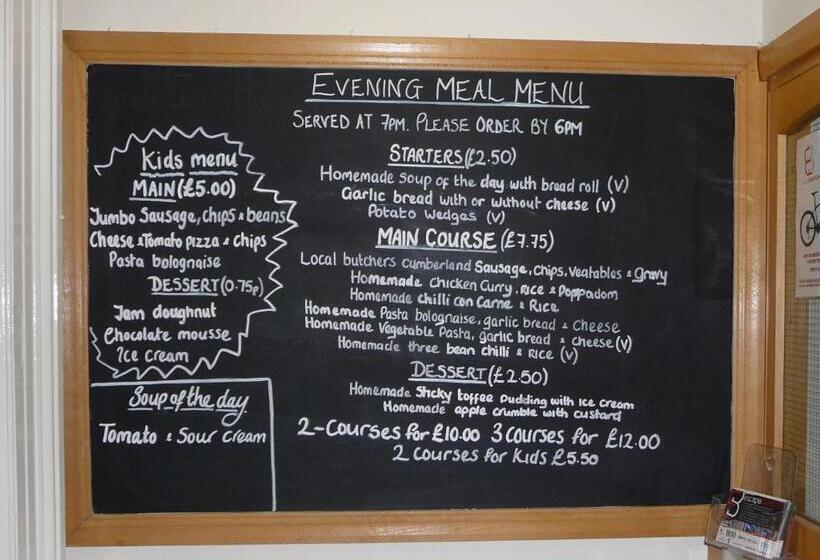 EVENING MEAL MENU
SERVED AT 7PM. PLEASE ORDER BY 6PM
STARTERS (£2.50)
Homemade soup of the day with bread roll (v)
Garlic bread with or without cheese (v)
Potato wedges (v)
MAIN COURSE (£7.75)
Local butchers cumberland Sausage, chips, Veatables & gravy
Homemade chicken Curry, Rice & Poppadom
Homemade chilli con Carne & Rice
Homemade Pasta bolognaise, garlic bread & Cheese
Homemade Vegetable Pasta, garlic bread & cheese (v)
Homemade three bean chilli & Rice (v)
DESSERT (£2.50)
Homemade Sticky toffee Pudding with Ice cream
Homemade apple crumble with custard
2-Courses for £10.00 3 Courses for £12.00
2 Courses for Kids £5.50
Kids menu
MAIN (£5.00)
Jumbo Sausage, chips & beans
Cheese & Tomato pizza & chips
Pasta bolognaise
DESSERT (0.75p)
Jam doughnut
Chocolate mousse
Ice cream
Soup of the day
Tomato & Sour cream
escape